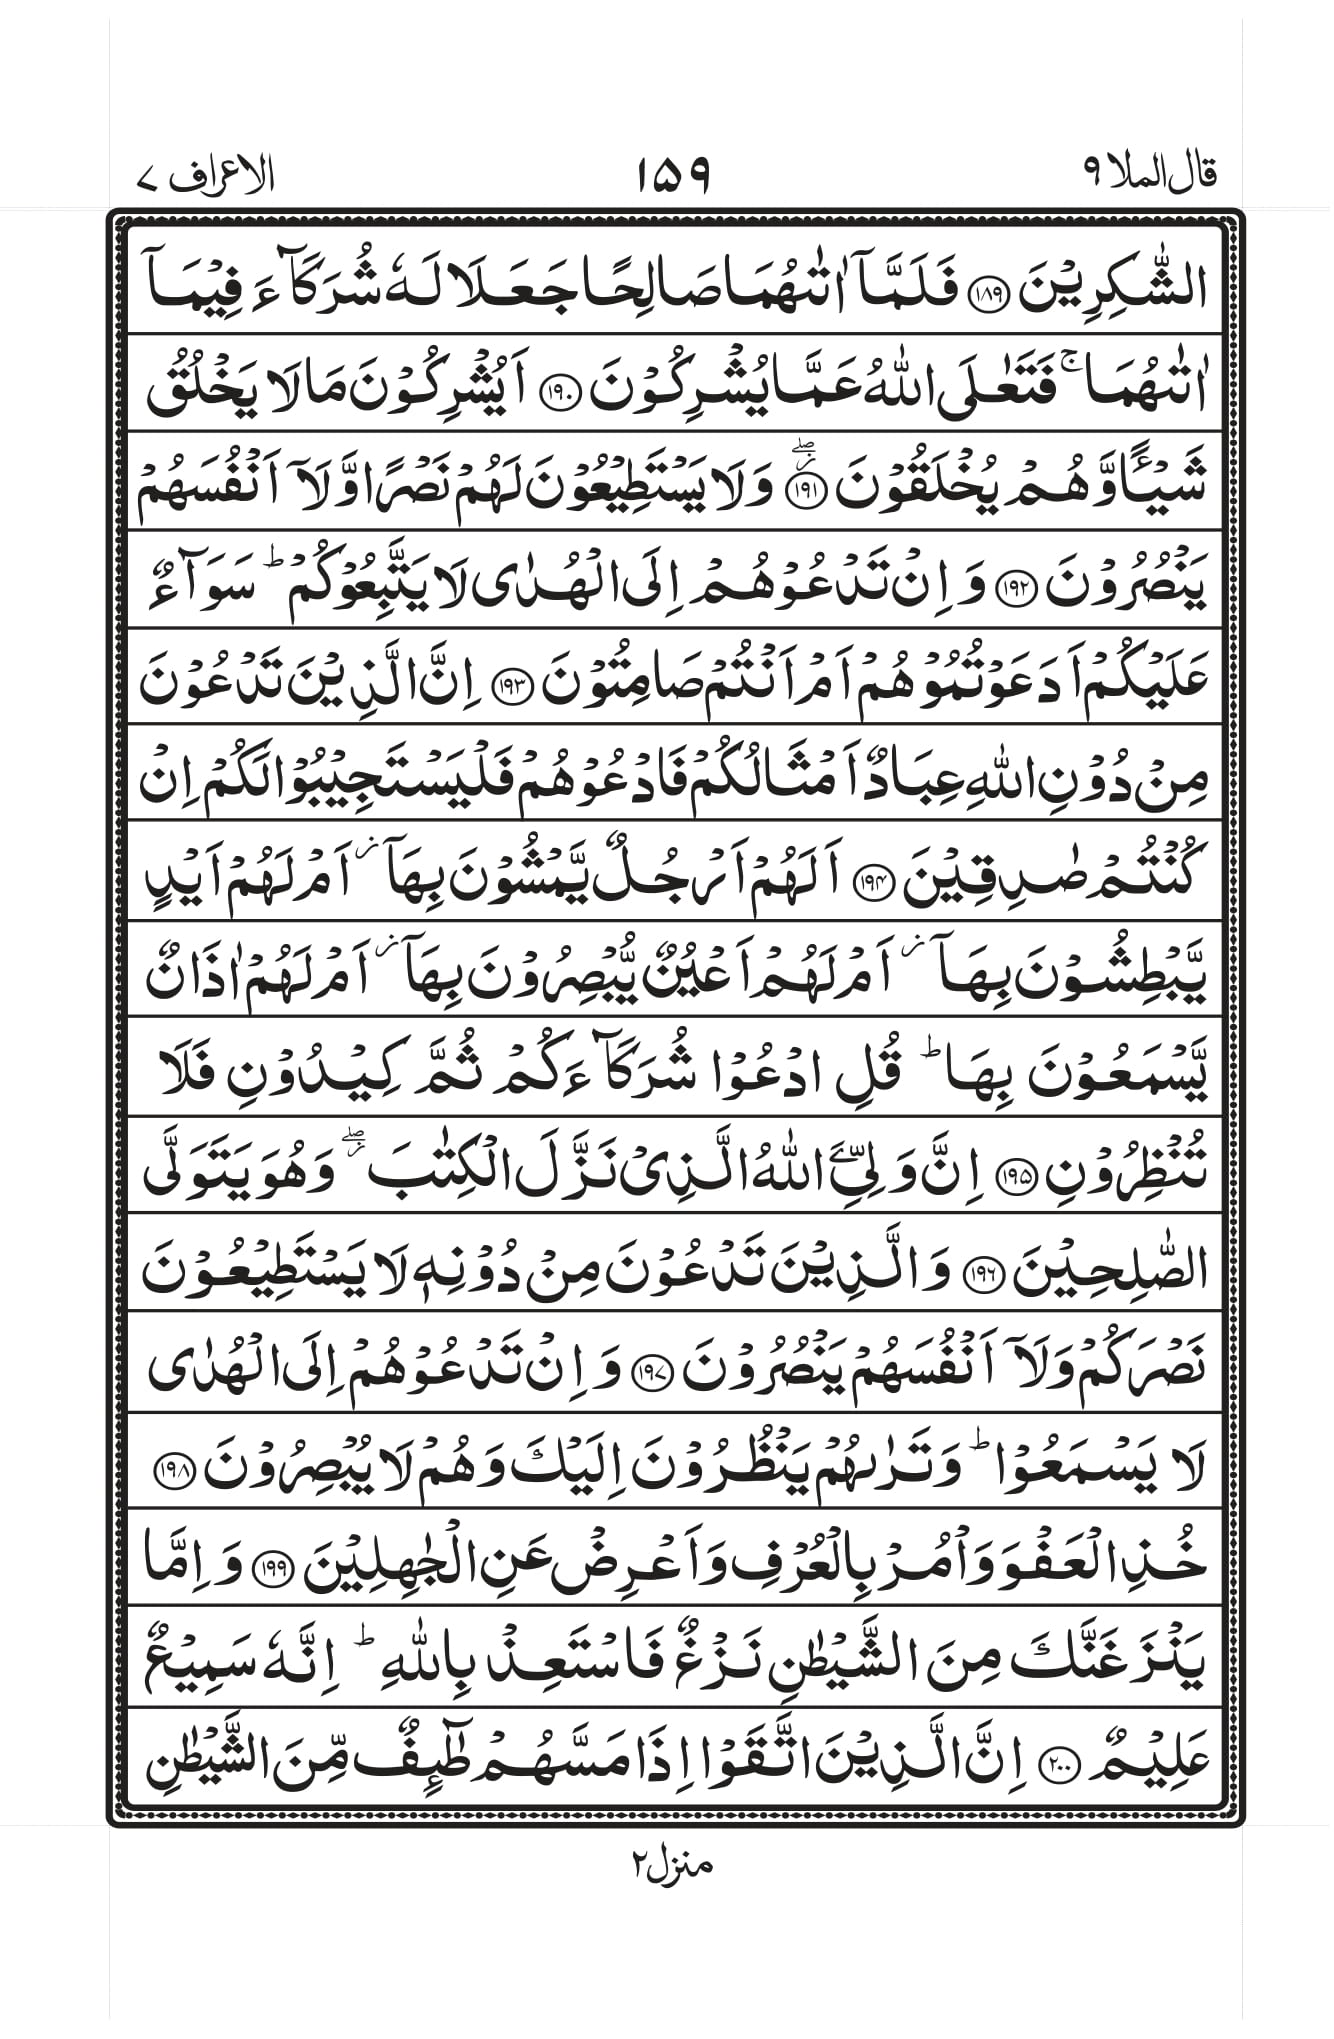 قال الملا ٩ ١٥٩ الاعراف ٧
الشّٰكِرِيْنَ ﴿١٨٩﴾ فَلَمَّاۤ اٰتٰىهُمَا صَالِحًا جَعَلَا لَهٗ شُرَكَآءَ فِيْمَاۤ
اٰتٰىهُمَا ۚ فَتَعٰلَى اللّٰهُ عَمَّا يُشْرِكُوْنَ ﴿١٩٠﴾ اَيُشْرِكُوْنَ مَا لَا يَخْلُقُ
شَيْـًٔا وَّهُمْ يُخْلَقُوْنَ ﴿١٩١﴾ۖز وَلَا يَسْتَطِيْعُوْنَ لَهُمْ نَصْرًا وَّلَاۤ اَنْفُسَهُمْ
يَنْصُرُوْنَ ﴿١٩٢﴾ وَاِنْ تَدْعُوْهُمْ اِلَى الْهُدٰى لَا يَتَّبِعُوْكُمْ ؕ سَوَآءٌ
عَلَيْكُمْ اَدَعَوْتُمُوْهُمْ اَمْ اَنْتُمْ صَامِتُوْنَ ﴿١٩٣﴾ اِنَّ الَّذِيْنَ تَدْعُوْنَ
مِنْ دُوْنِ اللّٰهِ عِبَادٌ اَمْثَالُكُمْ فَادْعُوْهُمْ فَلْيَسْتَجِيْبُوْا لَكُمْ اِنْ
كُنْتُمْ صٰدِقِيْنَ ﴿١٩٤﴾ اَلَهُمْ اَرْجُلٌ يَّمْشُوْنَ بِهَاۤ ز اَمْ لَهُمْ اَيْدٍ
يَّبْطِشُوْنَ بِهَاۤ ز اَمْ لَهُمْ اَعْيُنٌ يُّبْصِرُوْنَ بِهَاۤ ز اَمْ لَهُمْ اٰذَانٌ
يَّسْمَعُوْنَ بِهَا ؕ قُلِ ادْعُوْا شُرَكَآءَكُمْ ثُمَّ كِيْدُوْنِ فَلَا
تُنْظِرُوْنِ ﴿١٩٥﴾ اِنَّ وَلِيِّۧ اللّٰهُ الَّذِيْ نَزَّلَ الْكِتٰبَ ۖز وَهُوَ يَتَوَلَّى
الصّٰلِحِيْنَ ﴿١٩٦﴾ وَالَّذِيْنَ تَدْعُوْنَ مِنْ دُوْنِهٖ لَا يَسْتَطِيْعُوْنَ
نَصْرَكُمْ وَلَاۤ اَنْفُسَهُمْ يَنْصُرُوْنَ ﴿١٩٧﴾ وَاِنْ تَدْعُوْهُمْ اِلَى الْهُدٰى
لَا يَسْمَعُوْا ؕ وَتَرٰىهُمْ يَنْظُرُوْنَ اِلَيْكَ وَهُمْ لَا يُبْصِرُوْنَ ﴿١٩٨﴾
خُذِ الْعَفْوَ وَاْمُرْ بِالْعُرْفِ وَاَعْرِضْ عَنِ الْجٰهِلِيْنَ ﴿١٩٩﴾ وَاِمَّا
يَنْزَغَنَّكَ مِنَ الشَّيْطٰنِ نَزْغٌ فَاسْتَعِذْ بِاللّٰهِ ؕ اِنَّهٗ سَمِيْعٌ
عَلِيْمٌ ﴿٢٠٠﴾ اِنَّ الَّذِيْنَ اتَّقَوْا اِذَا مَسَّهُمْ طٰٓئِفٌ مِّنَ الشَّيْطٰنِ
منزل٢